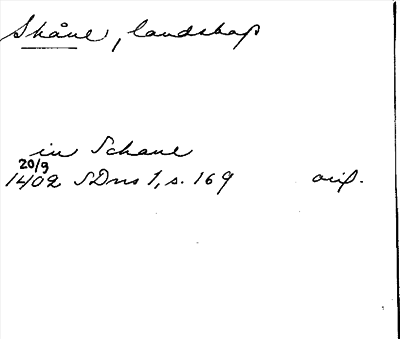 Skåne, landskap
in Schane
20/9
1402 SDns 1, s. 169 orig.